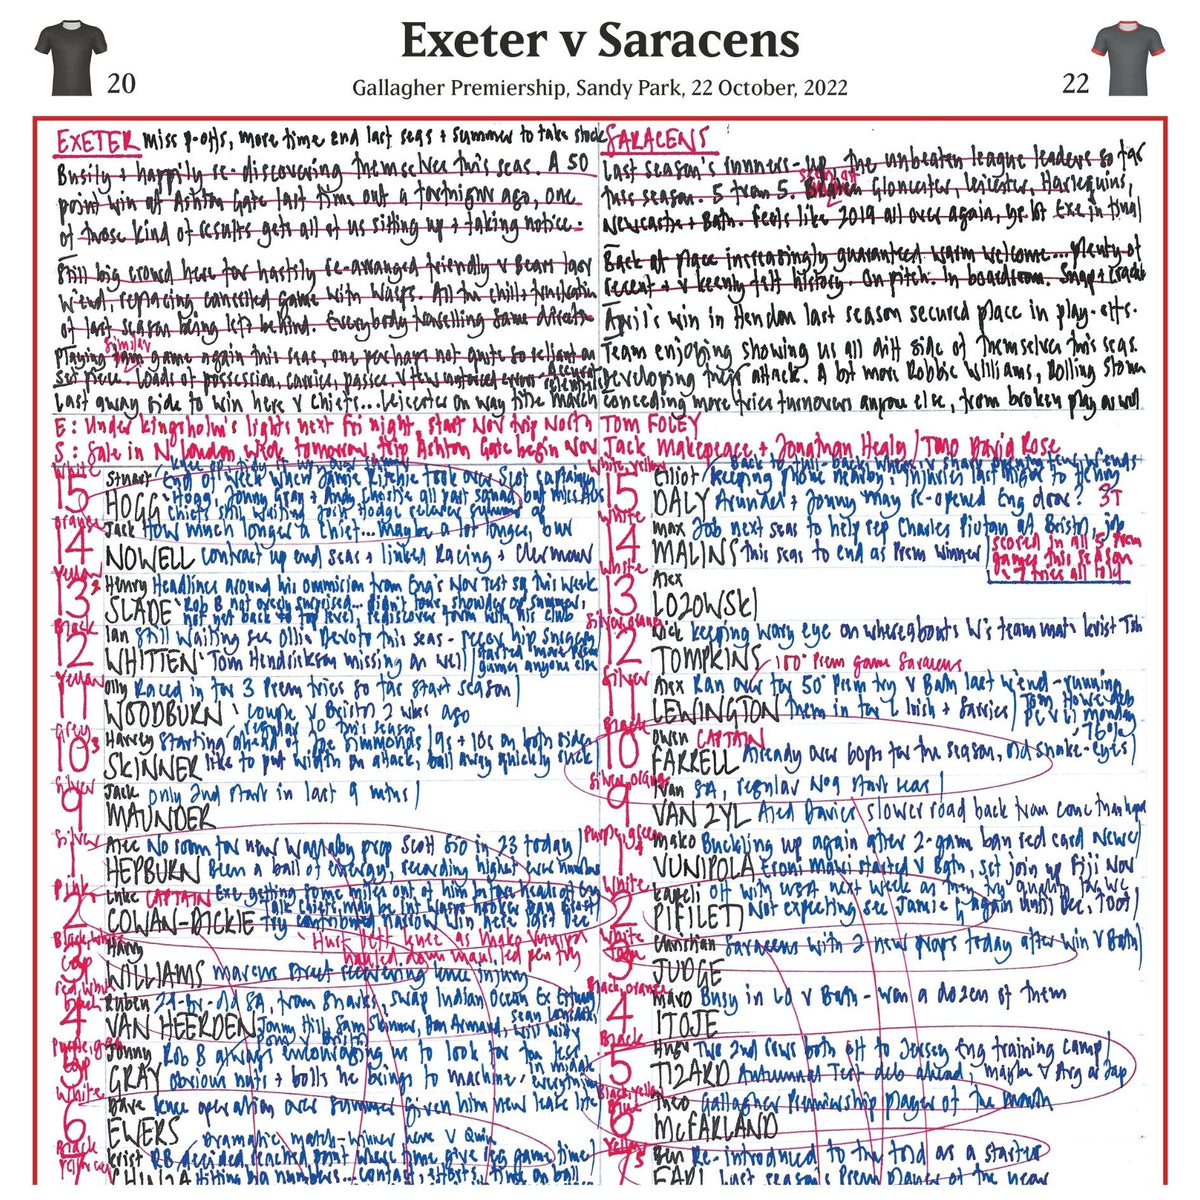 Exeter v Saracens
Gallagher Premiership, Sandy Park, 22 October, 2022
20
22
EXETER miss p-offs, more time end last seas + summer to take stock
Busily + happily re-discovering themselves this seas. A 50
point win at Ashton Gate last time out a fortnight ago, one
of those kind of results gets all of us sitting up + taking notice.
Still big crowd here for hastily re-arranged friendly v Bears last
w'end, replacing cancelled game with Wasps. All the chills + frustration
of last season being left behind. Everybody travelling same direction
Playing similar game again this seas, one perhaps not quite so reliant on
set piece. Loads of possession, carries, passes, v few enforced errors
Last away side to win here v Chiefs... Leicester on way title March
SARACENS
Last season's runners-up, the unbeaten league leaders so far
this season. 5 from 5. seen off Gloucester, Leicester, Harlequins,
Newcastle + Bath. Feels like 2019 all over again, yr. bt Exe in final
Back at place increasingly guaranteed warm welcome... plenty of
recent + v keenly felt history. On pitch. In boardroom. Snap + crackle
April's win in Hendon last season secured place in play-offs.
Team enjoying showing us all diff side of themselves this seas.
Developing their attack. A bit more Robbie Williams, Rolling Stones
Conceding more tries turnovers anyone else, from broken play as well
E: Under Kingsholm's lights next Fri night, start Nov trip North
S: Sale in N London wide tomorrow, trip Ashton Gate begin Nov
TOM FOLEY
Jack Makepeace + Jonathan Healy / TMO David Rose
White
15 Stuart HOGG
End off week when Jamie Ritchie took over Scot captaincy
Hogg, Jonny Gray + Andy Christie all part squad
Chiefs still waiting Josh Hodge
Orange
14 Jack NOWELL
How much longer a Chief... maybe a lot longer, our
contract up end seas + linked Racing + Clermont
Yellow
13 Henry SLADE
Headlines around his ommision from Eng's Nov Test sq this week
Rob B not overly surprised... didn't tour, shoulder op summer,
not got back to top level, rediscover form with his club
Black
12 Ian WHITTEN
Still waiting see Ollie Devoto this seas - recov hip surgery
Tom Hendrickson missing as well
started more Prem games anyone else
Yellow
11 Olly WOODBURN
Raced in for 3 Prem tries so far start season
couple v Bristol 2 wks ago
Grey
10 Harvey SKINNER
regular 10 this season
Starting ahead of Joe Simmonds 19s + 10s on both sides
like to put width on attack, ball away quickly ruck
Silver
9 Jack MAUNDER
Only 2nd start in last 9 mths
Silver
1 Alec HEPBURN
No room for new Wallaby prop Scott Sio in 23 today
Been a ball of energy, recording higher
Pink
2 Luke CAPTAIN COWAN-DICKIE
Exe getting some miles out of him before heads off Eng
Try confirmed narrow win here last Dec
Hurt left knee as Mako Vunipola
hauled down maul, led pen try
Black, White Cap
3 Harry WILLIAMS
Marcus Street recovering knee injury
Red, White Black
4 Ruben VAN HEERDEN
24-yr-old SA, from Sharks, swap Indian Ocean Ex Estuary
Jonny Hill, Sam Skinner, Don Armand, Sean Lonsdale, Will Witty
Cap
5 Jonny GRAY
Rob B always encouraging us to look for
obvious nuts + bolts he brings to machine, everything
White
6 Dave EWERS
Knee operation over summer given him new lease life
Dramatic match-winner here v Quin
Black
RB decided reached point where time give reg game time
Hitting big numbers... contact, efforts, time on ball
White, yellow
15 Elliot DALY
Back to full-back, wears v sharp opening few w'ends
Keeping phone nearby, injuries last night to Henry
Arundell + Jonny May re-opened Eng door?
3T
White
14 Max MALINS
Job next seas to help rep Charles Piutau at Bristol, job
this seas to end as Prem winner
scored in all 5 Prem
games this season
- 7 tries all told
White
13 Alex LOZOWSKI
Silver, orange
12 Nick TOMPKINS
Keeping wary eye on whereabouts W's team mate Krist Tsh
100° Prem game Saracens
Silver
11 Alex LEWINGTON
Ran over for 50° Prem try v Bath last w'end - running
them in for L Irish + Sarries
Tom Howe deb
Black
10 Owen CAPTAIN FARRELL
Already over 60pts for the season, old snake-eyes
76%
Silver, orange
9 Ivan VAN ZYL
SA, regular No9 start seas
Aled Davies slower road back from
Purple, green
1 Mako VUNIPOLA
Buckling up again after 2-game ban red card Newc
Eroni Mawi started v Bath, set join up Fiji Nov
White
2 Kapeli PIFILETI
Off with USA next week as they try qualify for WC
Not expecting see Jamie G again until Dec, foot
White
3 Christian JUDGE
Saracens with 2 new props today after win v Bath
Black, orange
4 Maro ITOJE
Busy in LO v Bath - won a dozen of them
Black
5 Hugh TIZARD
Two 2nd rows both off to Jersey Eng training camp
Autumnal Test deb ahead, maybe v Arg or Jap
Black, yellow
6 Theo McFARLAND
Gallagher Premiership Player of the Month
Yellow
7 Ben EARL
Re-introduced to the fold as a starter
Last season's Prem Player of the year